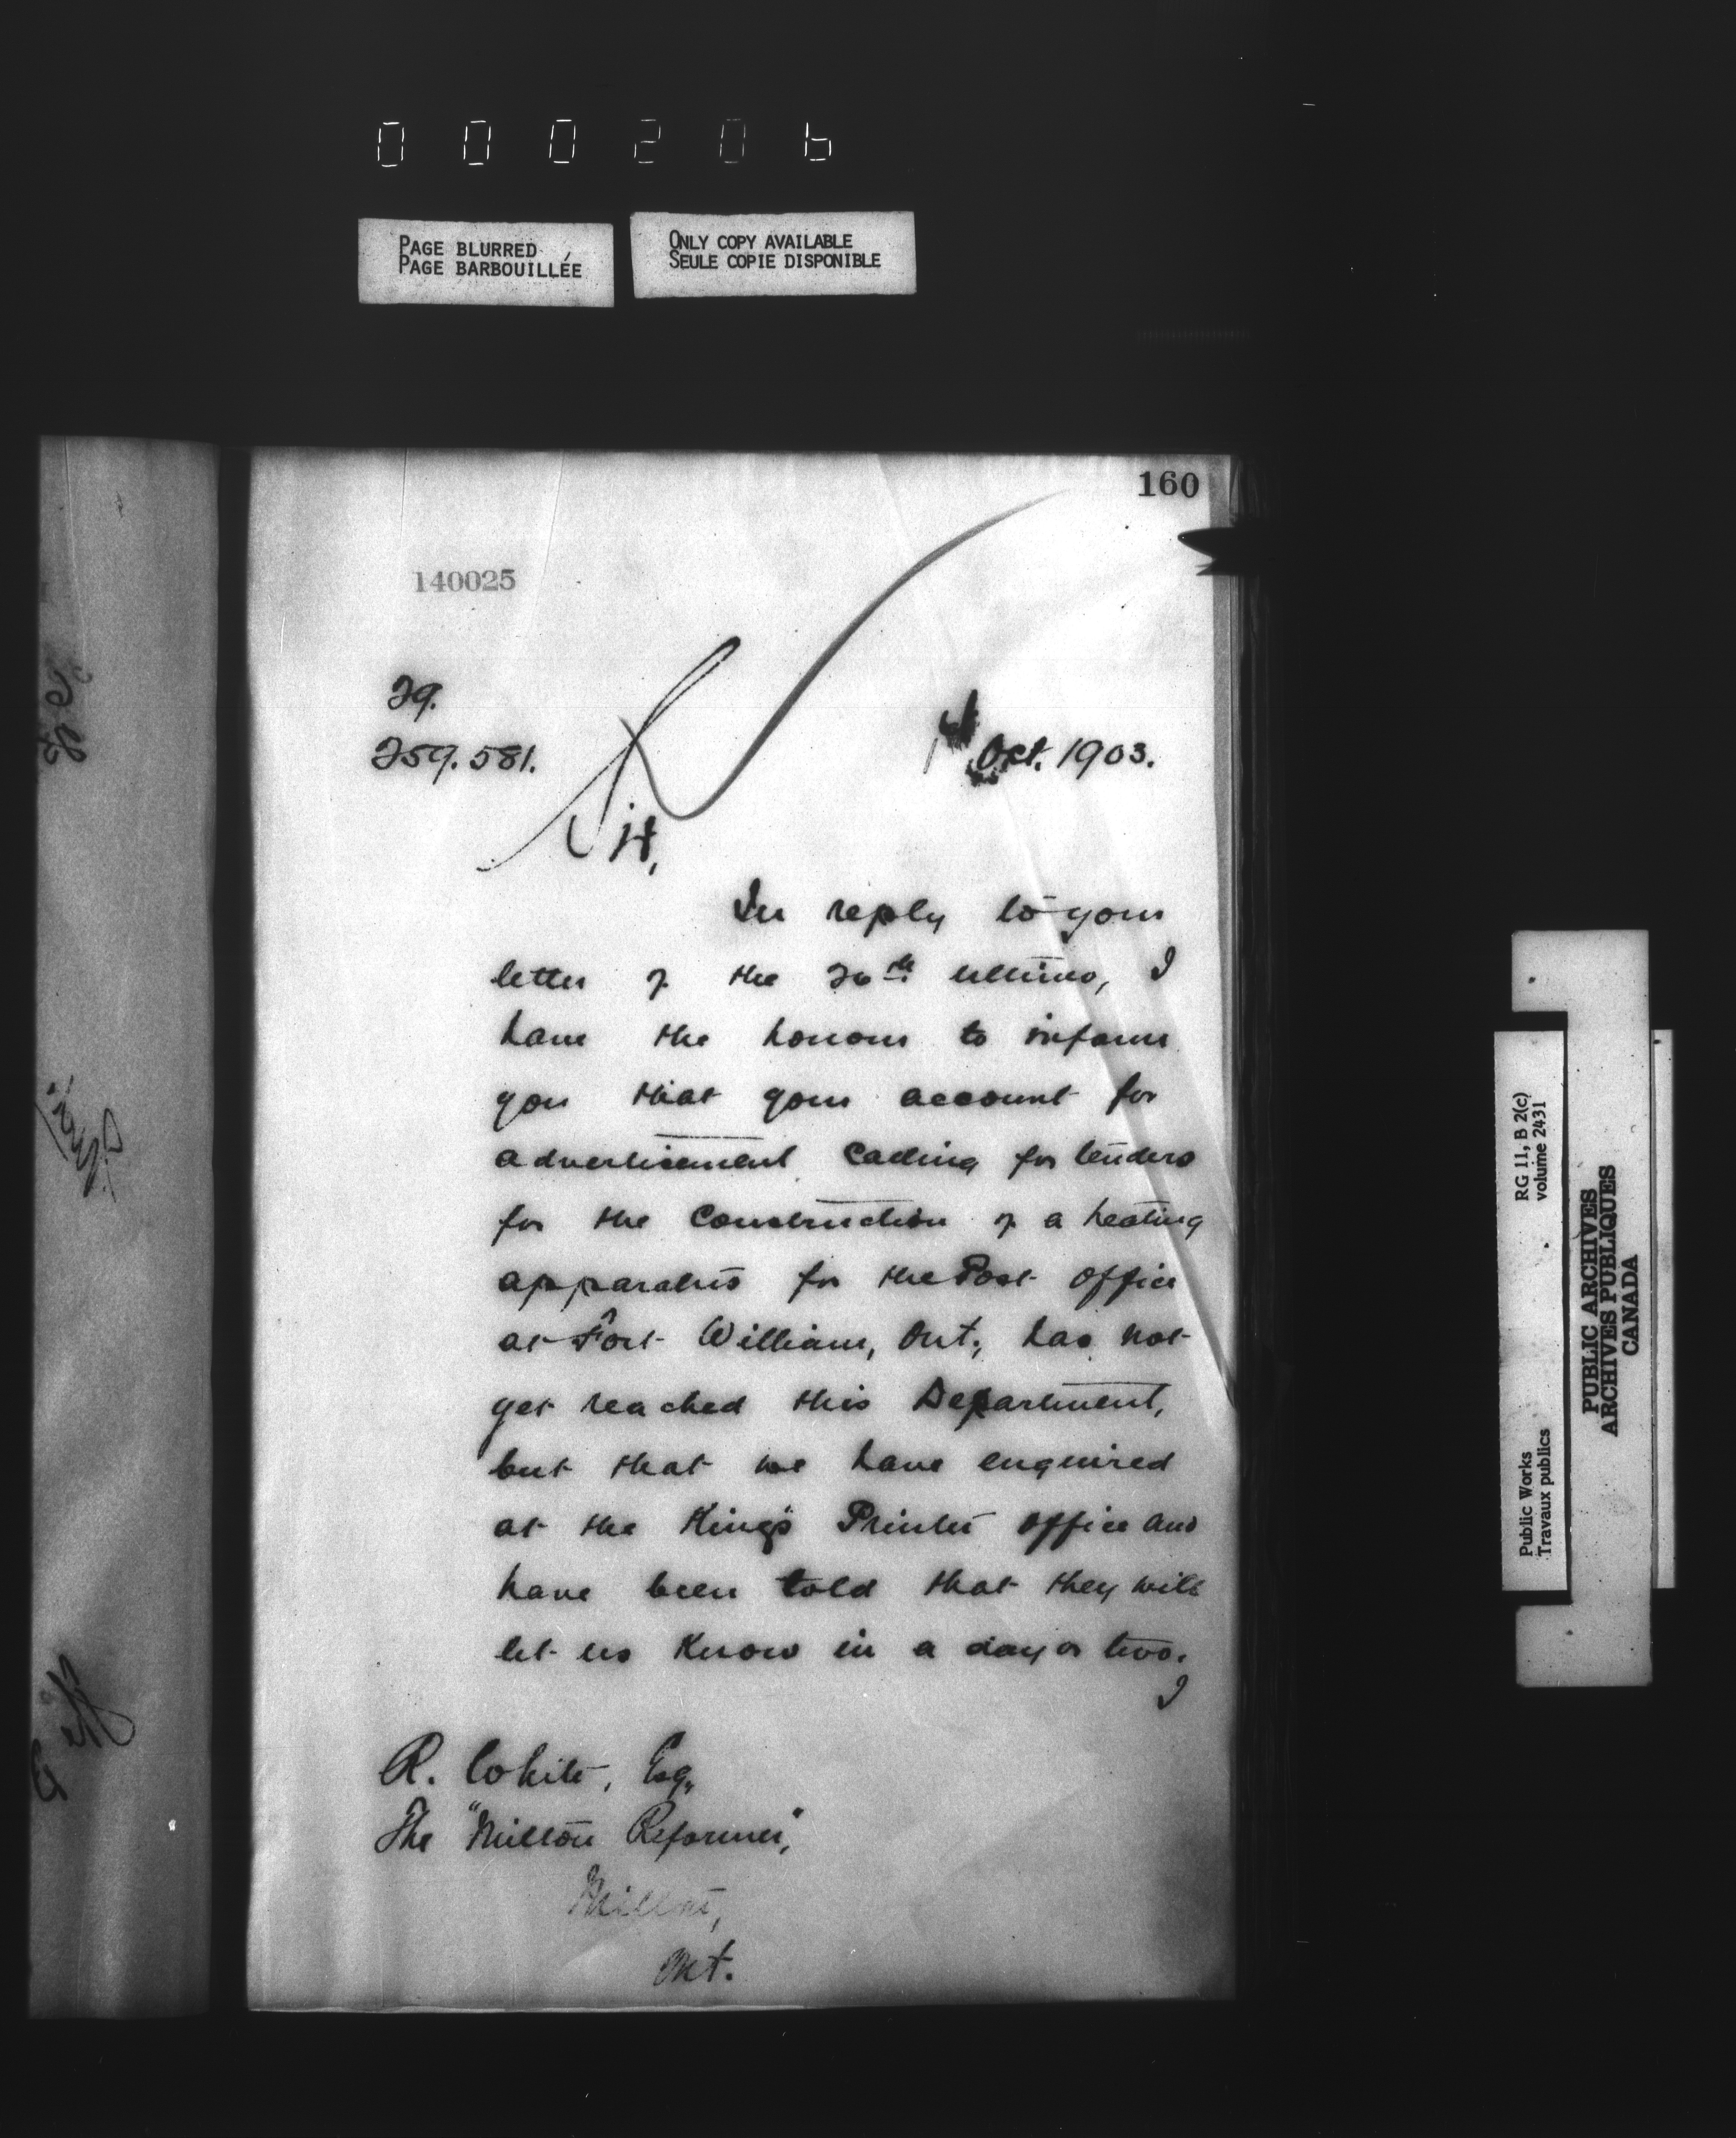 000206
PAGE BLURRED
PAGE BARBOUILLÉE
ONLY COPY AVAILABLE
SEULE COPIE DISPONIBLE
160
140025
29.
259.581.
1st Oct. 1903.
Sir,
In reply to your
letter of the 26th ultimo, I
have the honour to inform
you that your account for
advertisement calling for tenders
for the construction of a heating
apparatus for the Post Office
at Fort William, Ont., has not
yet reached this Department,
but that we have enquired
at the King's Printer office and
have been told that they will
let us know in a day or two.
I
R. White, Esq.,
The "Milton Reformer",
Milton,
Ont.
RG 11, B 2(c)
volume 2431
Public Works
Travaux publics
PUBLIC ARCHIVES
ARCHIVES PUBLIQUES
CANADA